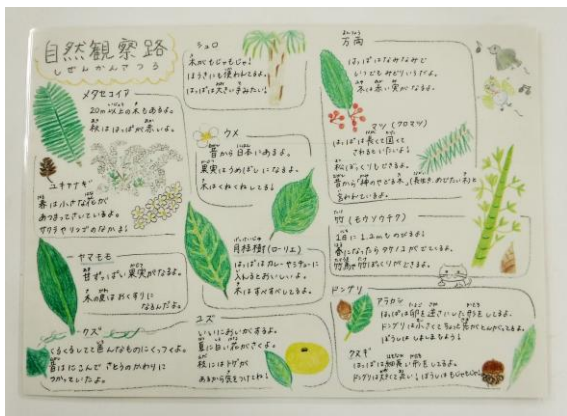 自然観察路
しぜんかんさつろ
メタセコイア
20m以上の木もあるよ。
秋ははっぱが赤いよ。
ユキヤナギ
春は小さな花が
あつまってさいているよ。
サクラやリンゴのなかま！
ヤマモモ
甘ずっぱい果実がなるよ。
木の皮はおくすりに
なるんだよ。
クズ
くるくるしてて色んなものにくっつくよ。
昔はにこんでさとうのかわりに
つかっていたよ。
シュロ
木がもじゃもじゃ！
ほうきにも使われてるよ。
はっぱは大きい手みたい！
ウメ
昔から日本にあるよ。
果実はうめぼしになるよ。
木はくねくねしてる
月桂樹(ローリエ)
げっけいじゅ
はっぱはカレーやシチューに
入れるとおいしいよ。
木はすべすべしてるよ。
ユズ
いいにおいがするよ。
夏に白い花がさくよ。
枝にはトゲが
あるから気をつけてね！
万両
まんりょう
はっぱはなみなみで
いつでもみどりいろだよ。
冬は赤い実がなるよ。
マツ (クロマツ)
はっぱは長くて固くて
さわるといたいよ！
松ぼっくりもできるよ。
昔から「神のやどる木」(長生き、めでたい木)と
言われているよ。
竹 (モウソウチク)
たけ
1日に1.2mものびるよ！
春になったらタケノコがでてくるよ。
竹馬や竹ぼっくりができるよ。
ドングリ
アラカシ
はっぱは卵を逆さにした形をしてるよ。
ドングリは小さくてちょっと先がとんがってるよ。
ぼうしはしましまもよう！
クヌギ
はっぱは細長い形をしてるよ。
ドングリは大きくて丸い！ぼうしはもじゃもじゃ！